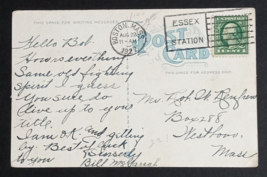 THIS SPACE FOR WRITING MESSAGES
POST CARD
BOSTON, MASS.
AUG
11-AM
192
ESSEX
STATION
Hello Bob
How is everything
Same old fighting
Spirit I guess
You sure do
live up to your
title.
I am O.K. and getting
by. Best of luck
to you
Sincerely
Bill
Mr. Robt. H. Renfrew
Box 288
Westboro,
Mass